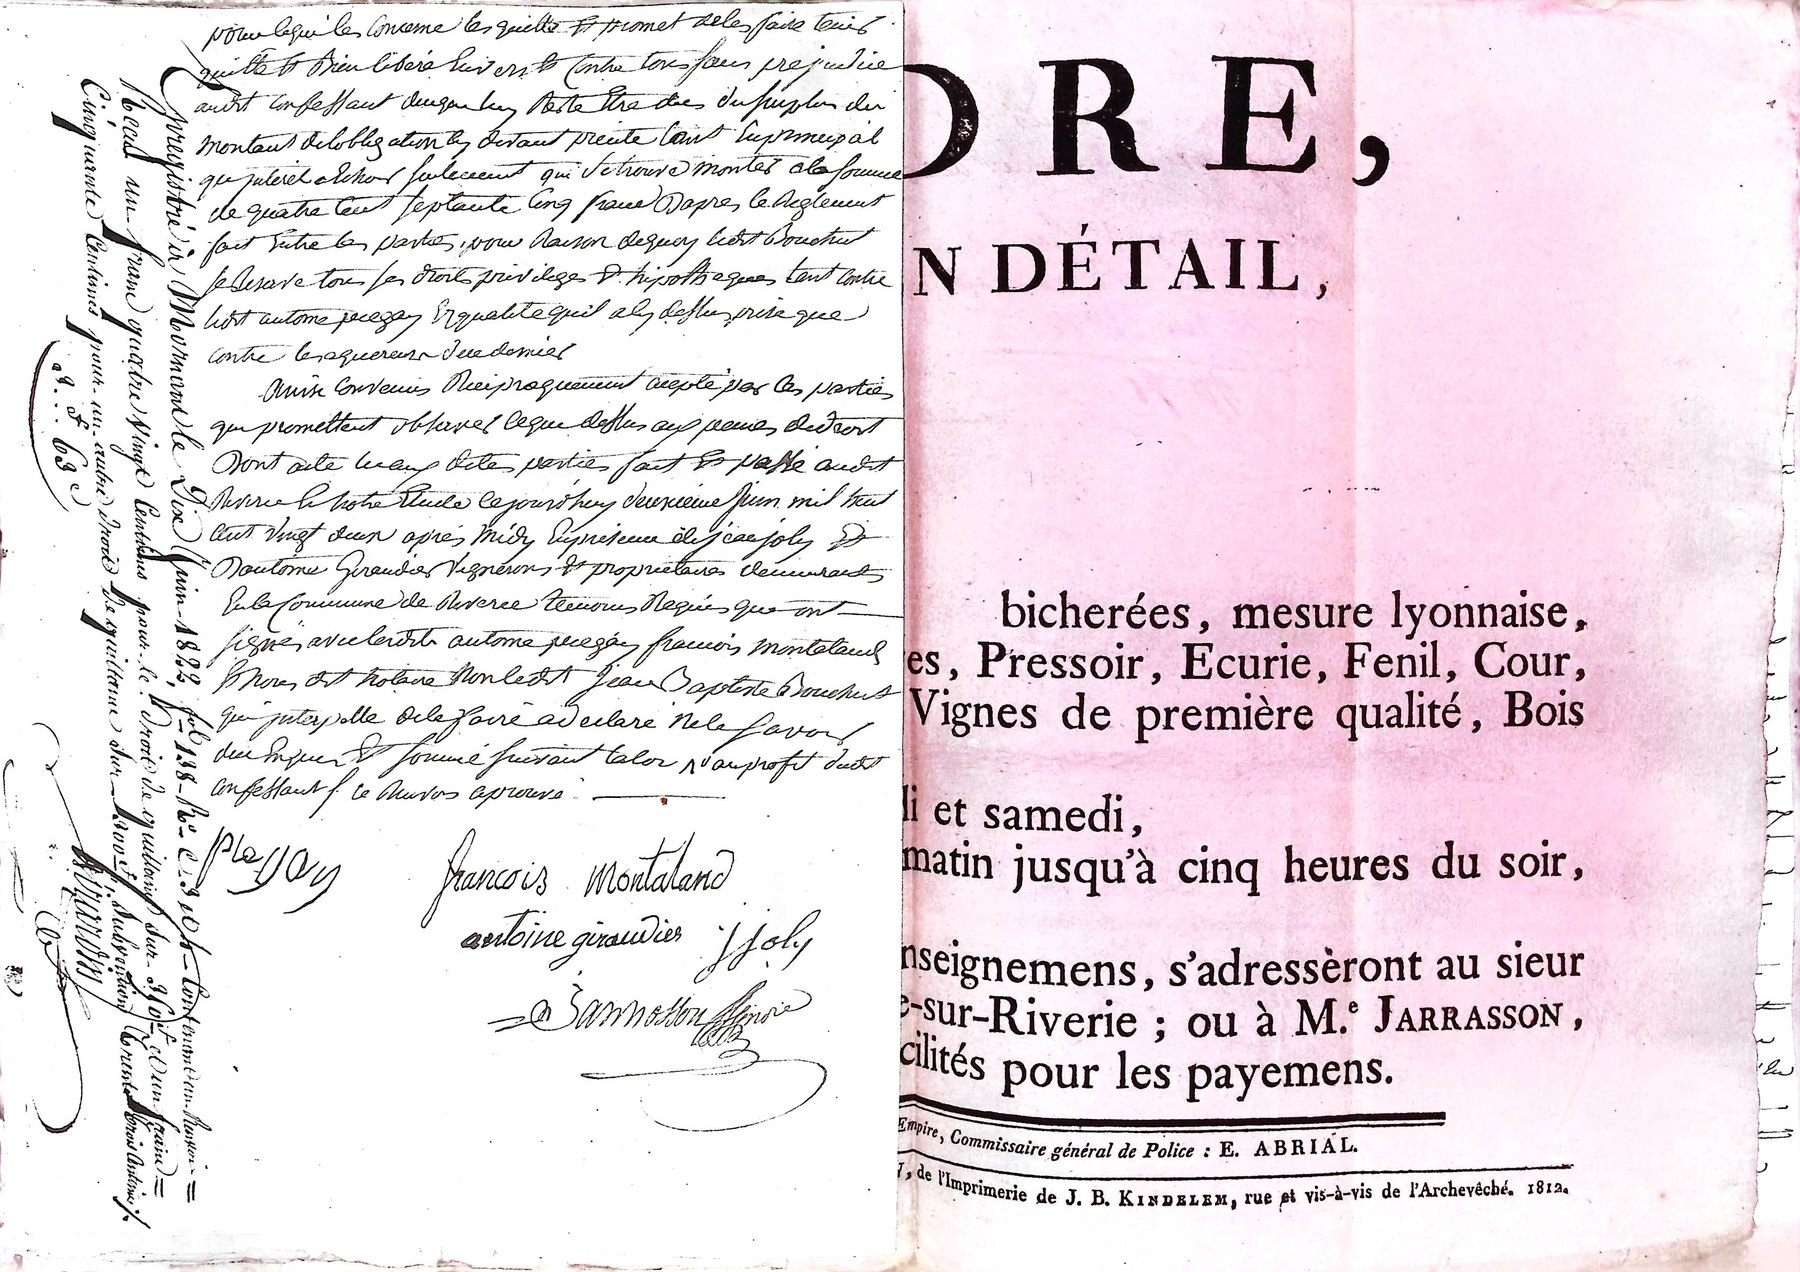 pour ce qui les concerne les quitte et promet de les faire tenir
quitte et bien libéré envers et contre tous sans prejudice
audit confessant de ce que luy reste être due du surplus du
montant de l'obligation cy devant tant en principal
qu'interet echus seulement qui se trouve monter a la somme
de quatre cent septante cinq franc d'apres le Reglement
fait entre les parties, pour Raison de quoy ledit Bouchut
se Reserve tous ses droits privileges et hipotheques tant contre
ledit antoine pleyay En qualité qu'il a cy dessus prise que
contre les aquereurs de ce dernier
Ainsi convenu Reciproquement accepté par les parties
qui promettent observer ce que dessus aux peines de droit
Dont acte aux dites parties fait et passé audit
Riverie En notre Etude ce jourd'huy deuxième Juin mil huit
cent vingt deux après Midy En presence de jean joly Et
D'antoine Giraudier Vignerons et propriétaires demeurants
En la Commune de Riverie temoins Requis qui ont
signés avec ledit antoine pleyay francois montaland
et nous dit Notaire Non ledit Jean Baptiste Bouchut
qui interpellé de le faire a declaré ne le savoir
de ce Enquis Et sommé suivant la loy au profit dudit
confessant
pleyay
francois montaland
antoine giraudier j joly
Jannosson Nore
Enregistré à Mornant le Dix Juin 1822, fol 138 Ro C. 3 et 4 Contenant un Renvoi =
Recu un franc quatre Vingt Centimes pour le Droit de quittance sur 360f et un franc =
Cinquante Centimes pour un autre droit de quittance sur Subvention trente trois Centimes
3f 63c
DRE,
N DÉTAIL,
bicherées, mesure lyonnaise,
es, Pressoir, Ecurie, Fenil, Cour,
Vignes de première qualité, Bois
li et samedi,
matin jusqu'à cinq heures du soir,
nseignemens, s'adressèront au sieur
e-sur-Riverie ; ou à M.e JARRASSON,
cilités pour les payemens.
Empire, Commissaire général de Police : E. ABRIAL.
, de l'Imprimerie de J. B. KINDELEM, rue et vis-à-vis de l'Archevêché. 1812.